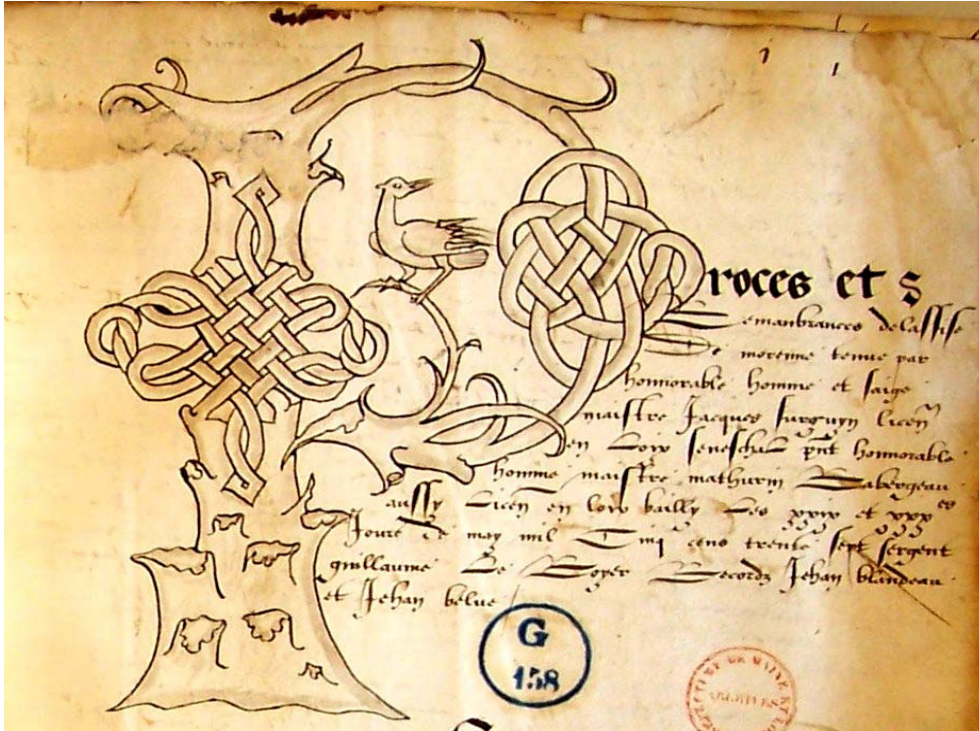 Proces et
Remanbrances delassise
De morenne tenue par
honnorable homme et saige
maistre Jacques Surguyn licen
en Loix seneschal pnt honnorable
homme maistre mathurin
aussy Licen en loix bailly Les xxix et xxx es
Jours de may mil cinq cens trente sept sergent
guillaume Le Royer Recordz Jehan blandeau
et Jehan belue
G
158